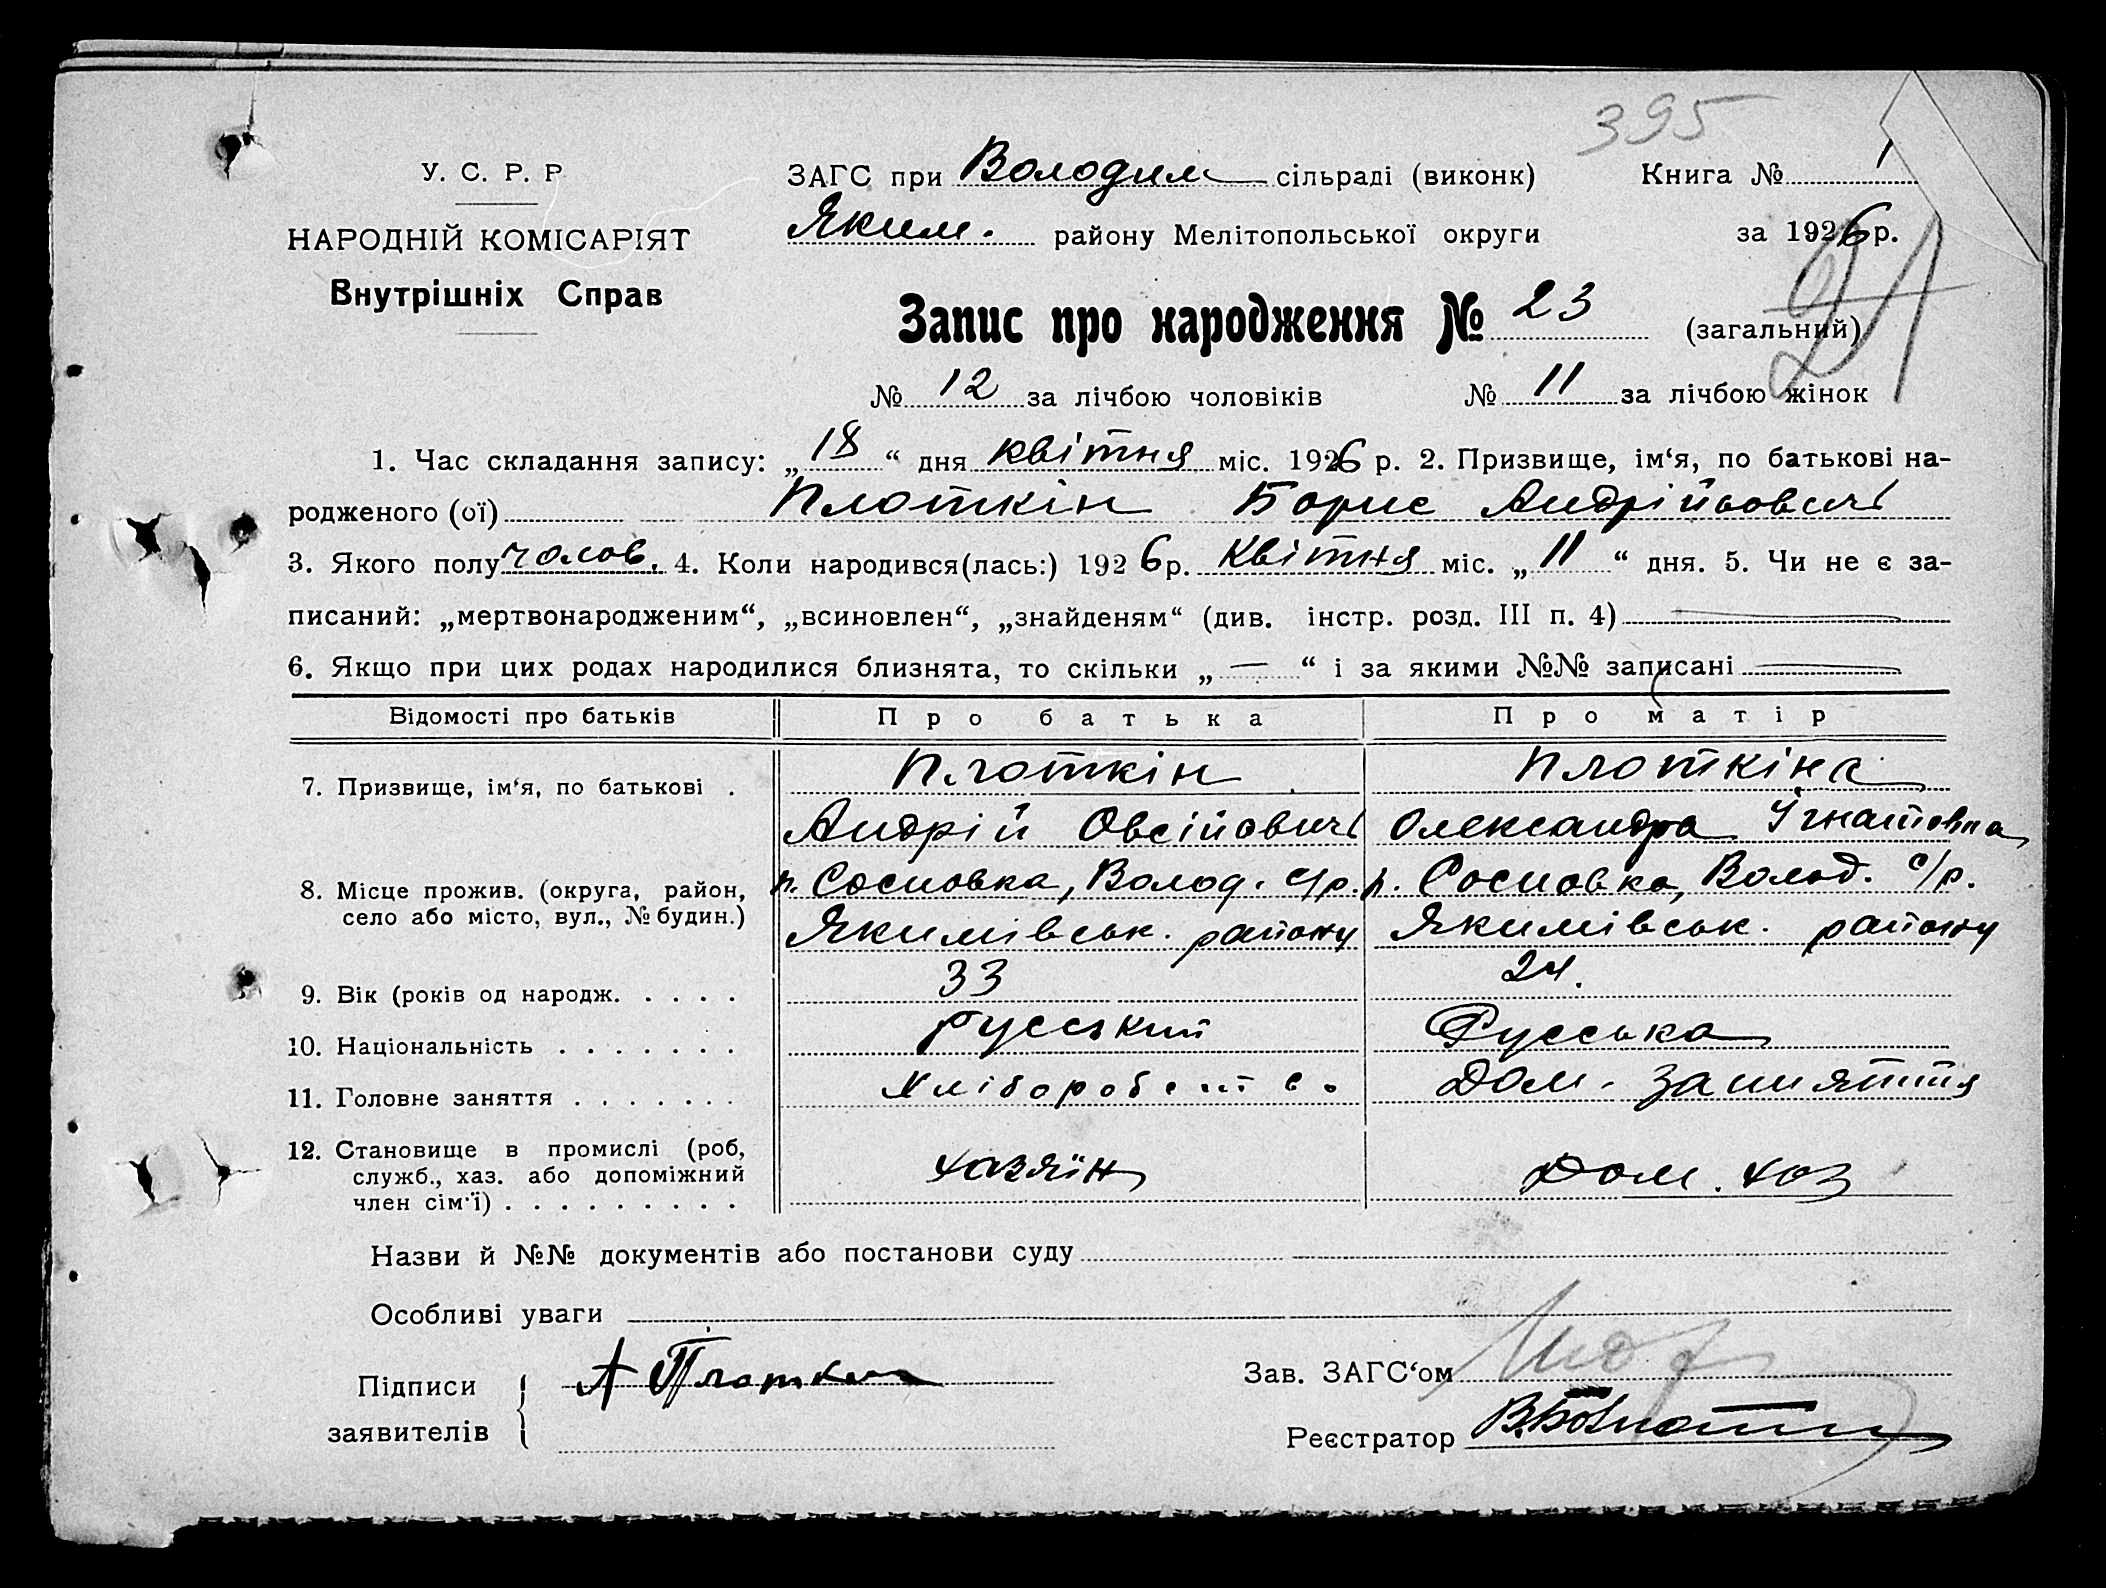 395
У. С. Р. Р
НАРОДНІЙ КОМІСАРІЯТ
Внутрішніх Справ
ЗАГС при Володим сільраді (виконк)
Книга № 1
Яким. району Мелітопольської округи
за 1926 р.
21
Запис про народження № 23 (загальний)
№ 12 за лічбою чоловіків № 11 за лічбою жінок
1. Час складання запису: „18“ дня квітня міс. 1926 р. 2. Призвище, ім‘я, по батькові на-
родженого (ої) Плоткін Борис Андрійович
3. Якого полу чолов. 4. Коли народився(лась:) 1926 р. Квітня міс. „11“ дня. 5. Чи не є за-
писаний: „мертвонародженим“, „всиновлен“, „знайденям“ (див. інстр. розд. III п. 4) —
6. Якщо при цих родах народилися близнята, то скільки „—“ і за якими №№ записані —
Відомості про батьків Про батька Про матір
7. Призвище, ім‘я, по батькові . Плоткін Плоткіна
Андрій Овсійович Олександра Ігнатовна
8. Місце прожив. (округа, район, п. Сосновка, Волод. с/р. п. Сосновка, Волод. с/р.
село або місто, вул., № будин.) Якимівськ. району Якимівськ. району
9. Вік (років од народж. . . . . 33 24.
10. Національність . . . . . . . русский Русська
11. Головне заняття . . . . . . . Хліборобство Дом. заняття
12. Становище в промислі (роб,
служб., хаз. або допоміжний хазяїн Дом. хоз
член сім‘ї) . . . . . . . . .
Назви й №№ документів або постанови суду
Особливі уваги
Підписи А Плоткин
заявителів
Зав. ЗАГС‘ом
Реєстратор